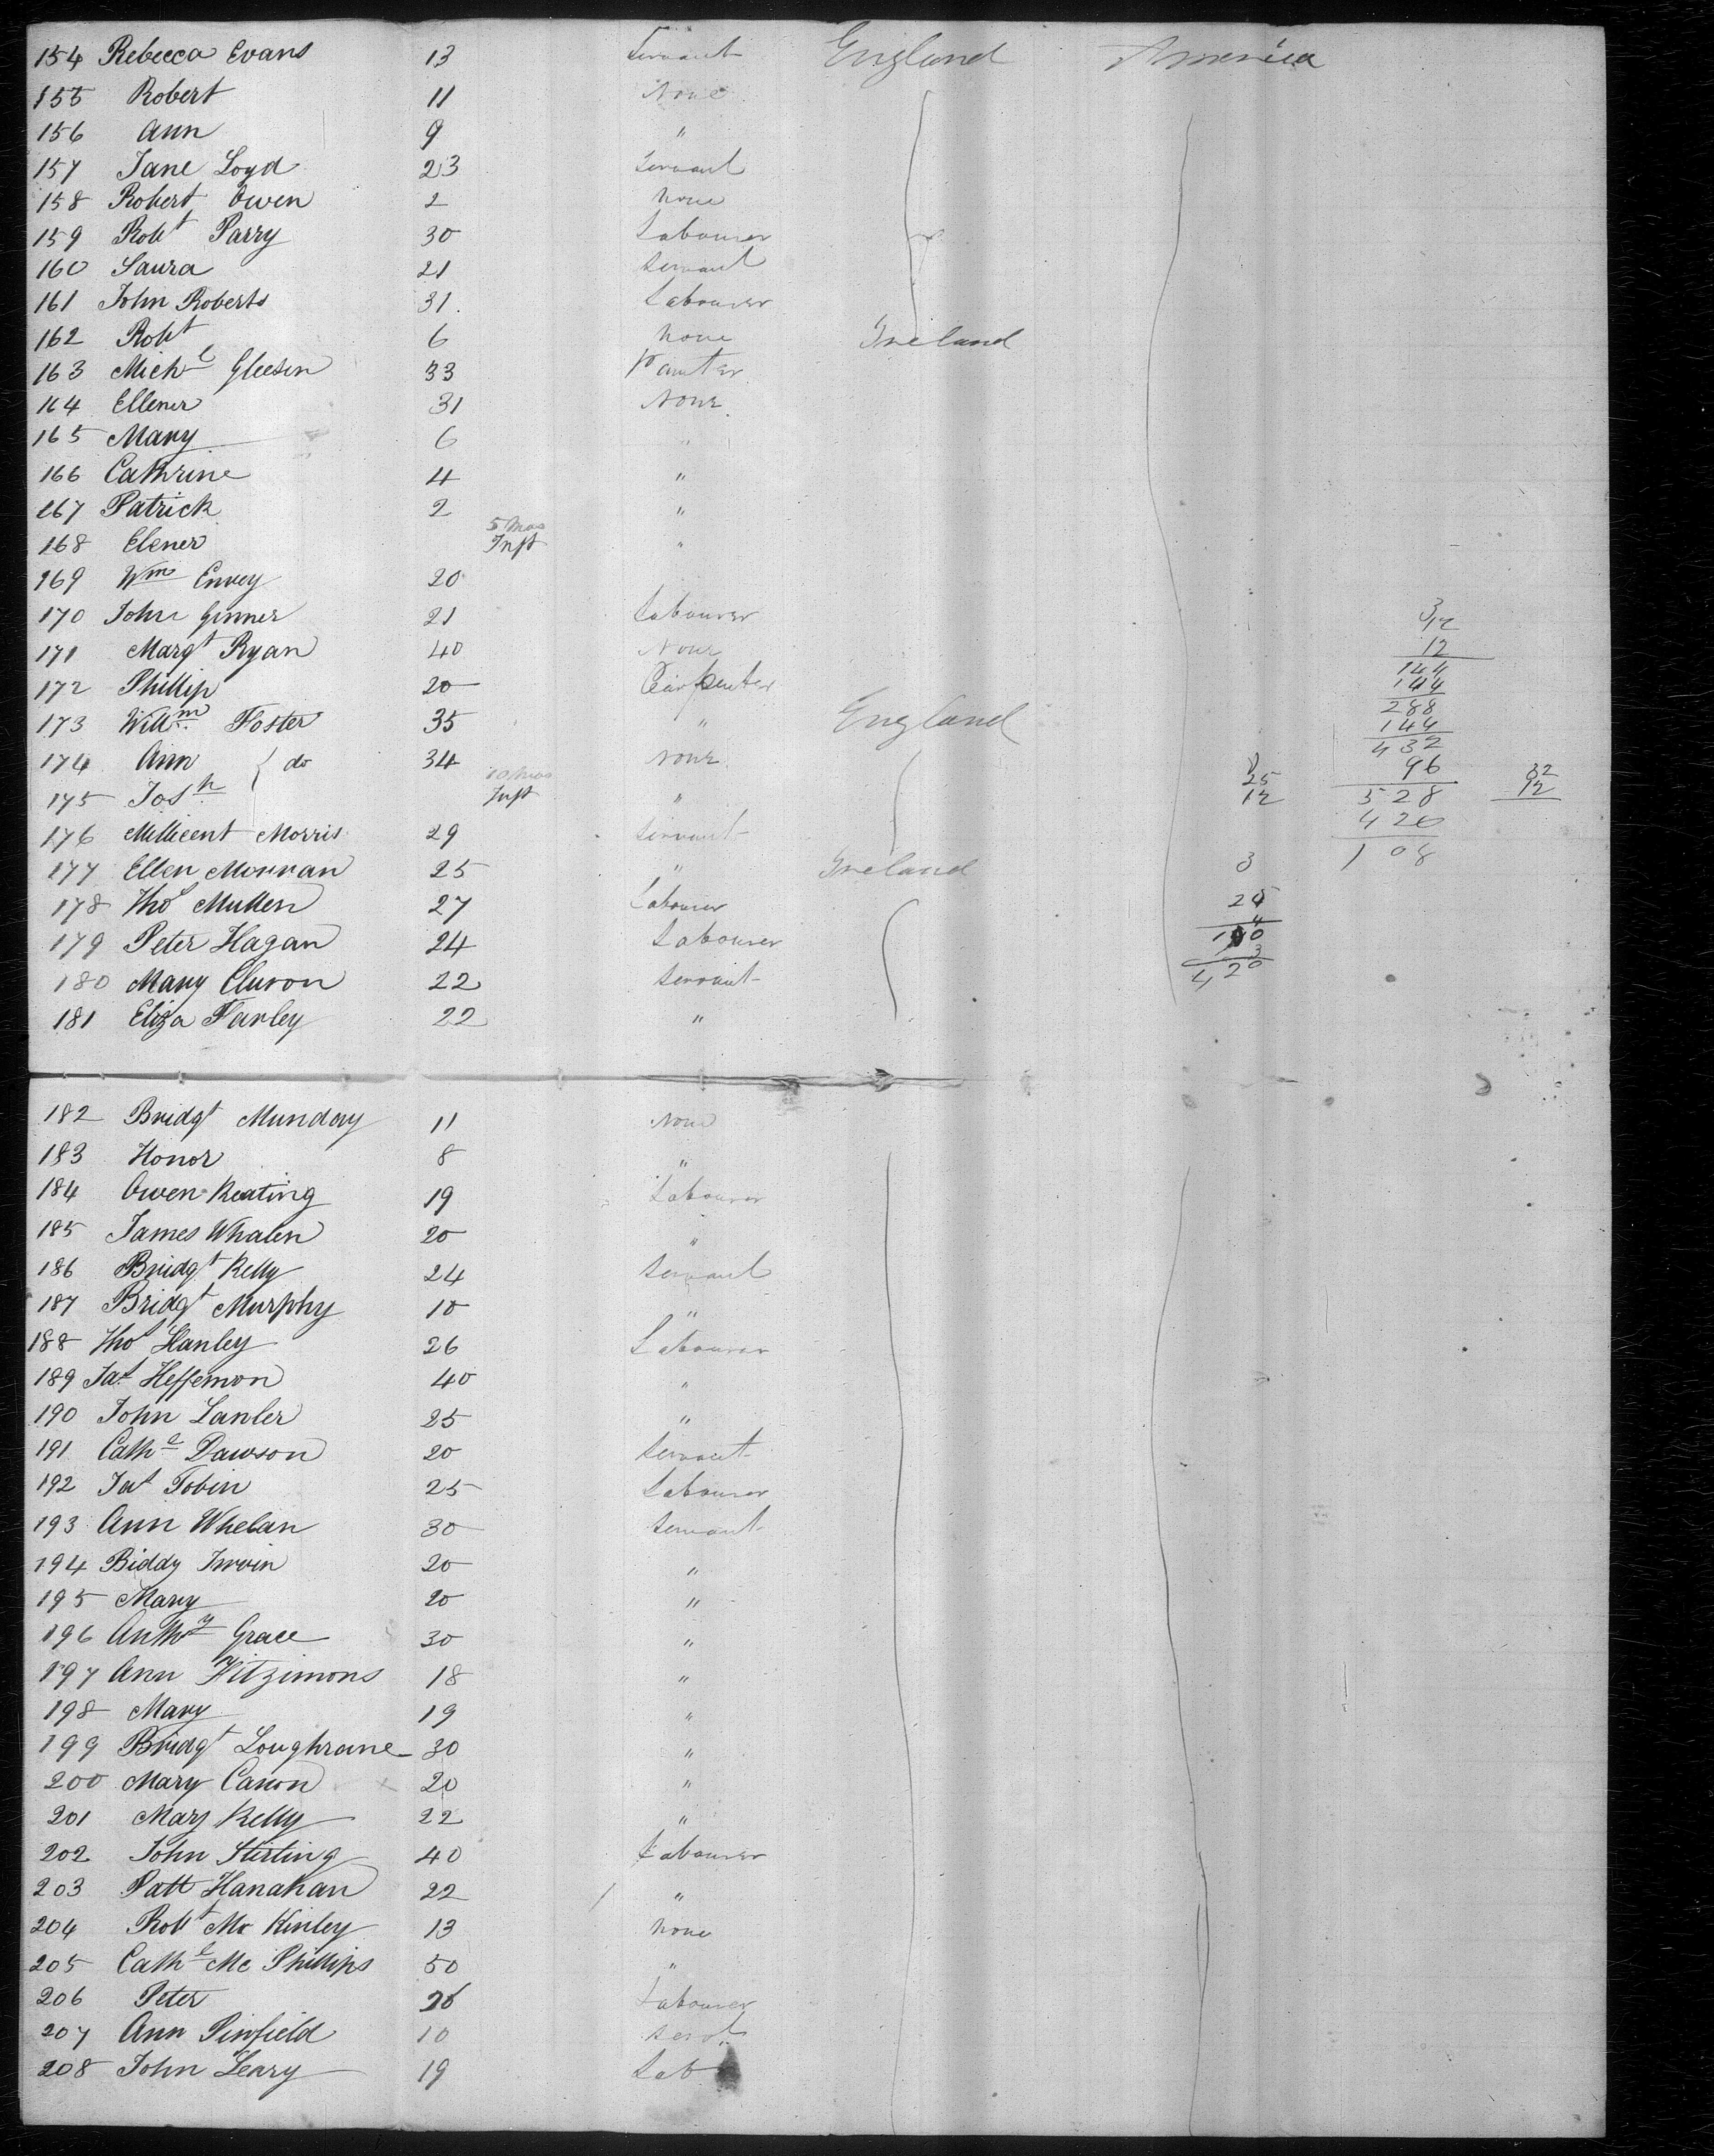 154 Rebecca Evans 13 Servant England America
155 Robert 11 None
156 Ann 9 "
157 Jane Loyd 23 Servant
158 Robert Owen 2 None
159 Robt Parry 30 Labourer
160 Laura 21 Servant
161 John Roberts 31 Labourer
162 Robt 6 None Ireland
163 Michl Gleeson 33 Painter
164 Ellener 31 None
165 Mary 6 "
166 Cathrine 4 "
167 Patrick 2 "
168 Elener 5 Mos Inft "
169 Wm Envey 20
170 John Ginner 21 Labourer
171 Margt Ryan 40 None
172 Phillip 20 Carpenter
173 Willm Foster 35 " England
174 Ann do 34 None
175 Josh 10 Mos Inft "
176 Millicent Morris 29 Servant
177 Ellen Mournan 25 " Ireland
178 Thos Mullen 27 Labourer
179 Peter Hagan 24 Labourer
180 Mary Cluron 22 Servant
181 Eliza Farley 22 "
12
144
144
288
144
432
96
528
420
108
25
12
3
32
12
420
182 Bridgt Munday 11 None
183 Honor 8 "
184 Owen Keating 19 Labourer
185 James Whalen 20 "
186 Bridgt Kelly 24 Servant
187 Bridgt Murphy 10 "
188 Thos Hanley 26 Labourer
189 Jas Heffernon 40 "
190 John Lanler 25 "
191 Cathe Dawson 20 Servant
192 Jas Tobin 25 Labourer
193 Ann Whelan 30 Servant
194 Biddy Irwin 20 "
195 Mary 20 "
196 Anthy Grace 30 "
197 Ann Fitzimons 18 "
198 Mary 19 "
199 Bridgt Loughrane 30 "
200 Mary Canon 20 "
201 Mary Kelly 22 "
202 John Stirling 40 Labourer
203 Patt Hanahan 22 "
204 Robt Mc Kinley 13 None
205 Cathe Mc Phillips 50 "
206 Peter 26 Labourer
207 Ann Pinfield 10 Servt
208 John Leary 19 Lab